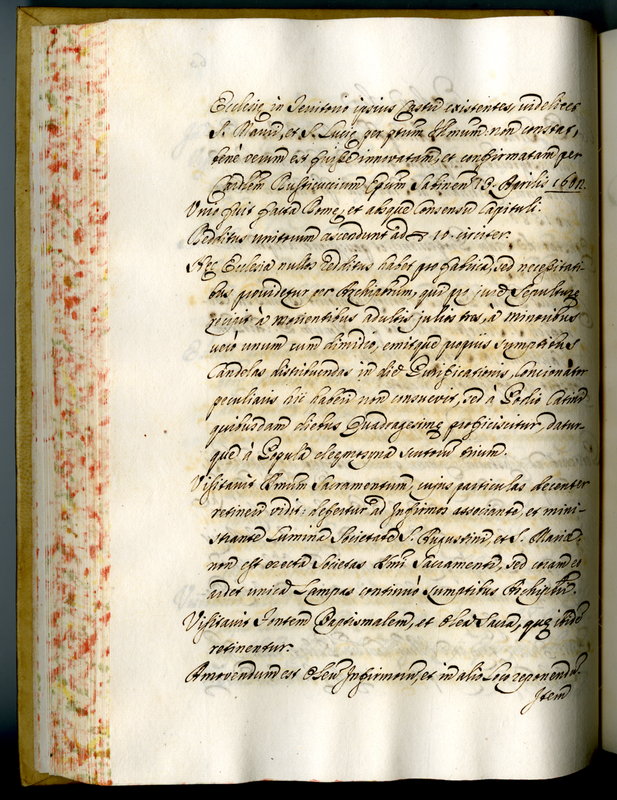 Ecclesię in Territorio ipsius Castri existentes, videlicet
S. Mauri, et S. Lucię per ptum Illmum: non constat,
benè verum est fuisse innovatam, et confirmatam per
Rusticucium Epum Sabinen 18. Aprilis 1601.
Unio fuit facta Romę, et absque Consensu Capituli.
Redditus unitorum ascendunt ad 10. circiter.
Hęc Ecclesia nullos redditus habet pro fabrica, sed necessitati-
bus providetur per Archiptrum, qui pro jure Sepulturę
exigit à morientibus adultis julios tres, à minoribus
verò unum cum dimidio, emitque propriis sumptibus
Candelas distribuendas in die Purificationis, Concionator
peculiaris hic haberi non consuevit, sed à Podio Catino
quibusdam diebus Quadragesimę proficiscitur, datur-
que à Populo eleemosyna scutorum trium.
Visitavit Smum Sacramentum, cujus particulas decenter
retineri vidit: defertur ad Infirmos associante, et mini-
strante Lumina Societate S. Augustini, et S. Marię,
non est erecta Societas Smi Sacramenti, sed coram eo
ardet unica Lampas continuò sumptibus Archiptri.
Visitavit Fontem Baptismalem, et Olea Sacra, quę ibidem
retinentur.
Amovendum est Oleum Infirmorum, et in alio Loco reponendum.
Item